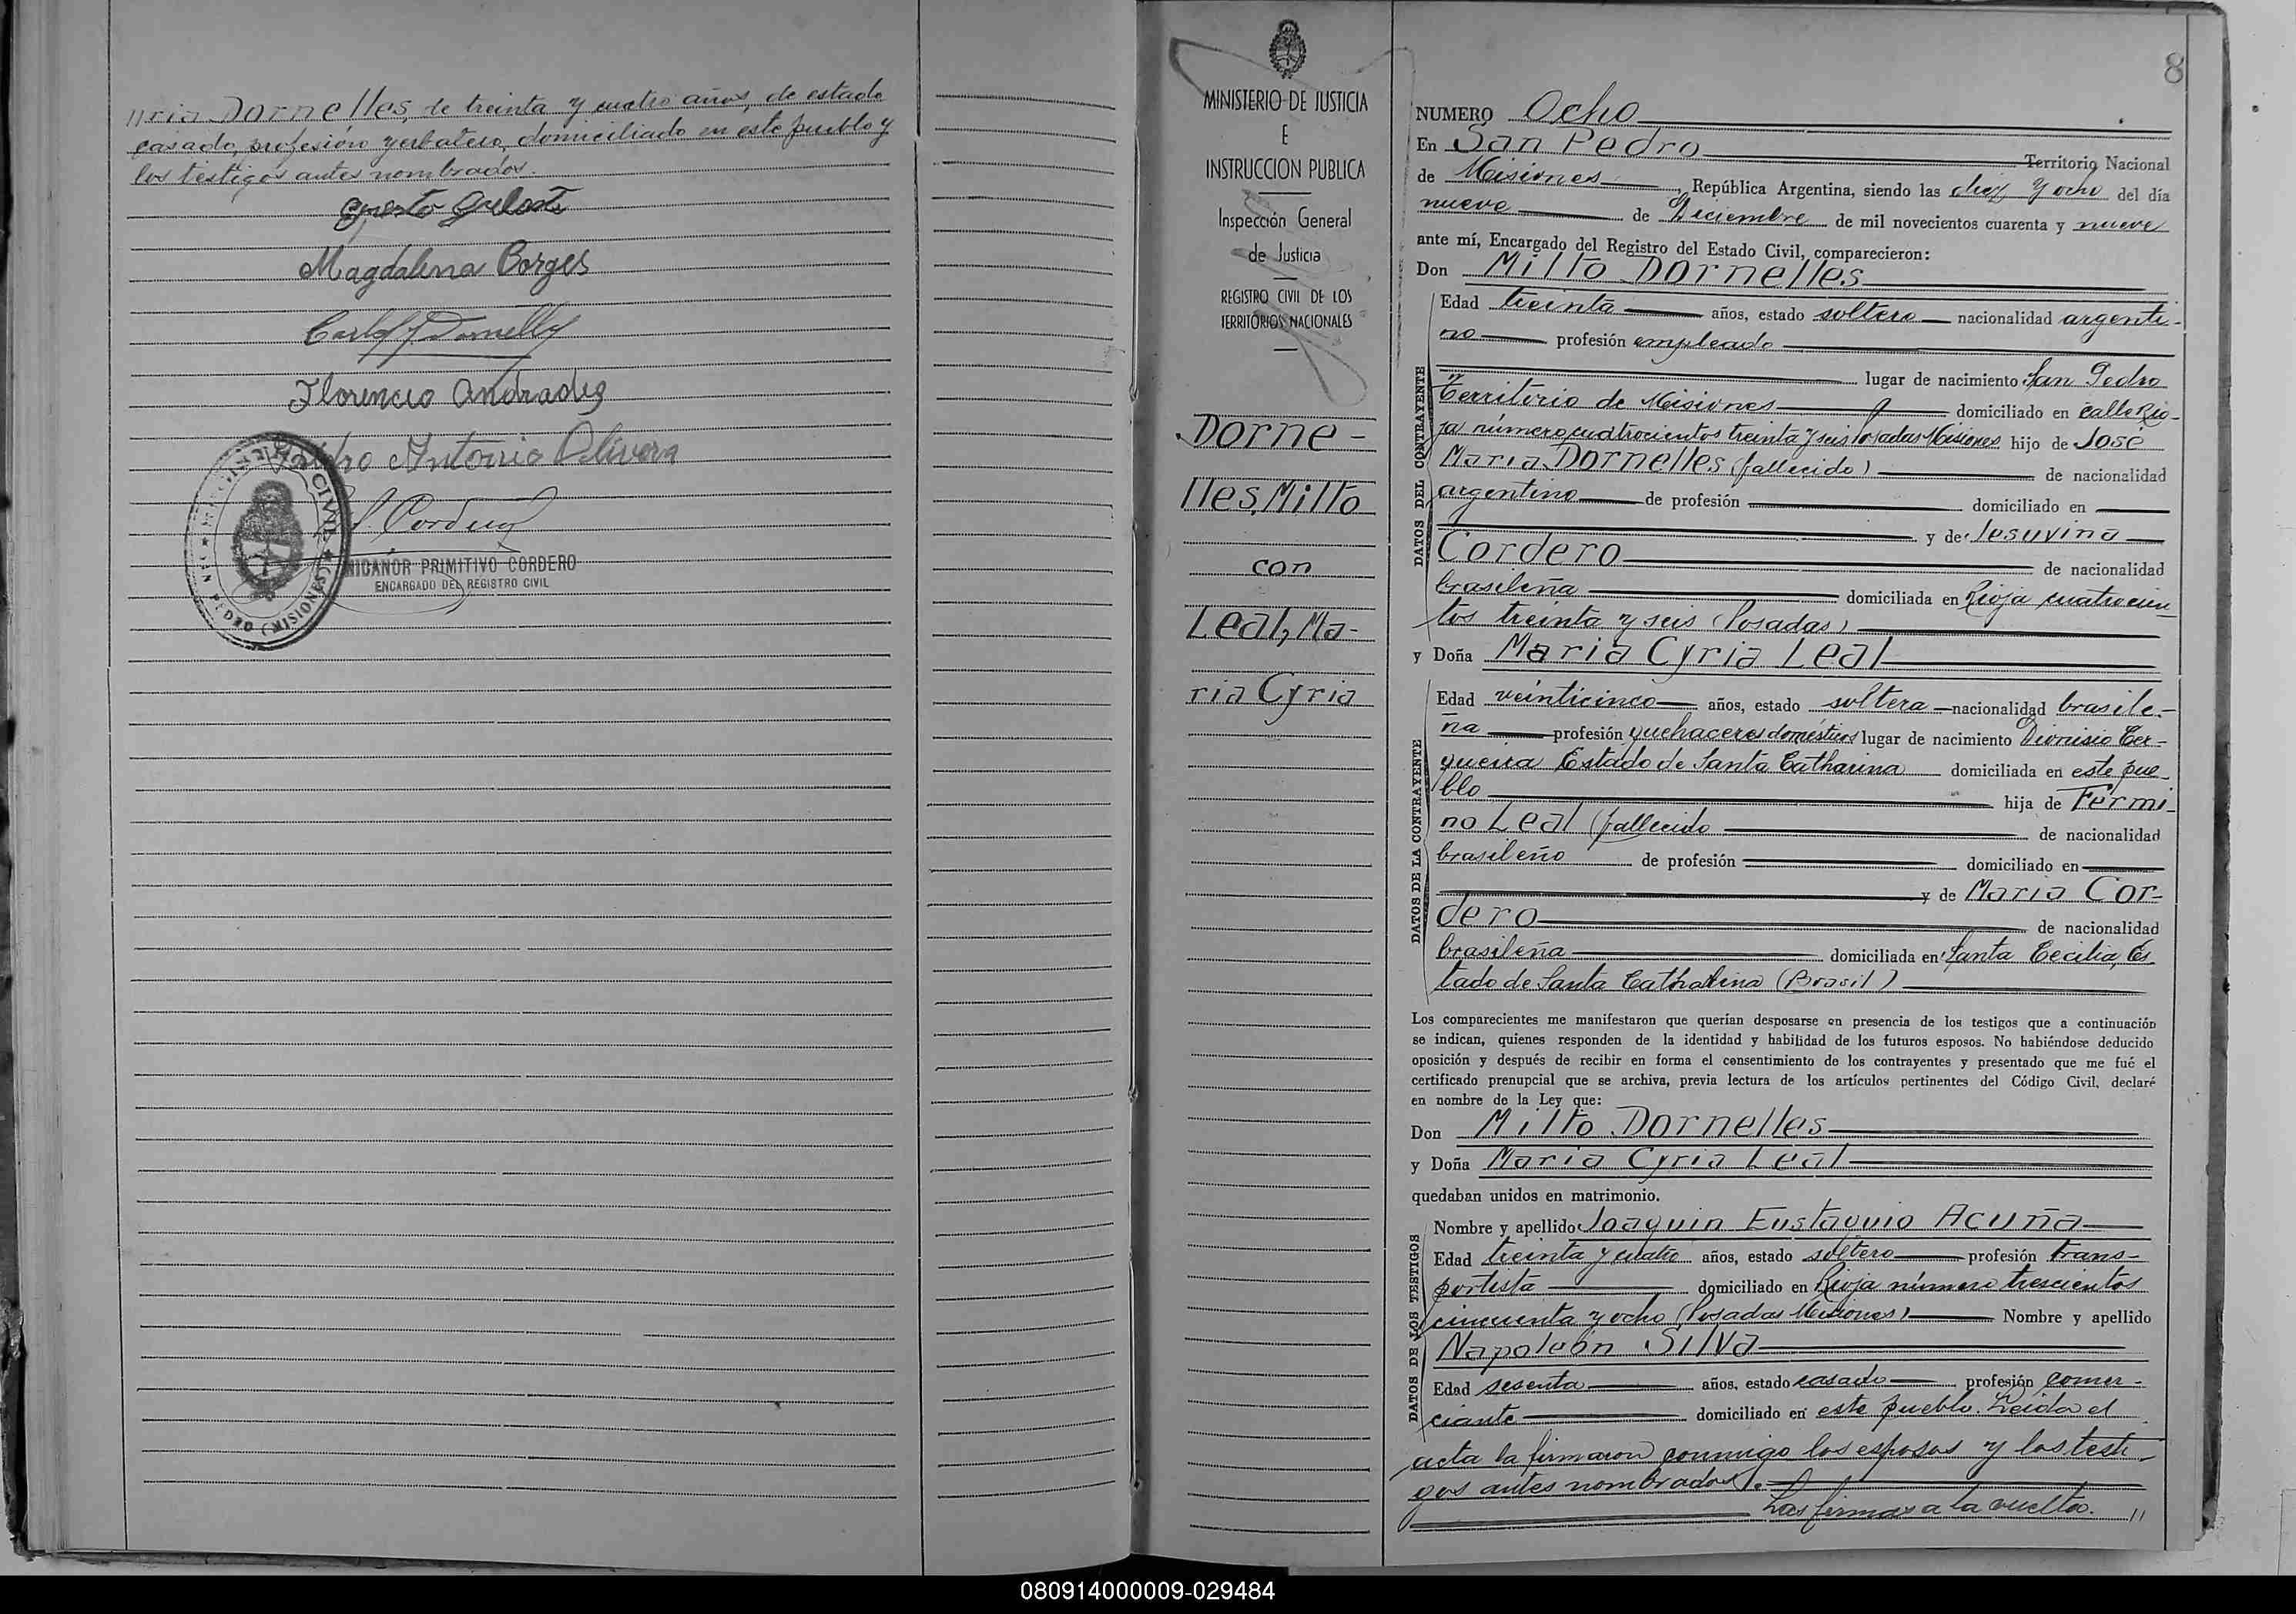 //ria Dornelles, de treinta y cuatro años, de estado
casado, profesión yerbatero, domiciliado en este pueblo y
los testigos antes nombrados.
Magdalena Borges
Carlos J. Dornelles
Florencio Andrades
Antonio Olivera
P. Cordero
NICANOR PRIMITIVO CORDERO
ENCARGADO DEL REGISTRO CIVIL
REGISTRO CIVIL
SAN PEDRO (MISIONES)
MINISTERIO DE JUSTICIA
E
INSTRUCCION PUBLICA
Inspección General
de Justicia
REGISTRO CIVIL DE LOS
TERRITORIOS NACIONALES
Dorne-
lles, Milto
con
Leal, Ma-
ria Cyria
8
NUMERO Ocho
En San Pedro Territorio Nacional
de Misiones, República Argentina, siendo las diez y ocho del día
nueve de Diciembre de mil novecientos cuarenta y nueve
ante mí, Encargado del Registro del Estado Civil, comparecieron:
Don Milto Dornelles
DATOS DEL CONTRAYENTE
Edad treinta años, estado soltero nacionalidad argenti-
no profesión empleado
lugar de nacimiento San Pedro
Territorio de Misiones domiciliado en calle Rio-
ja número cuatrocientos treinta y seis Posadas Misiones hijo de José
Maria Dornelles (fallecido) de nacionalidad
argentino de profesión domiciliado en
y de Jesuvina
Cordero de nacionalidad
brasileña domiciliada en Rioja cuatrocien
tos treinta y seis (Posadas)
y Doña Maria Cyria Leal
DATOS DE LA CONTRAYENTE
Edad veinticinco años, estado soltera nacionalidad brasile-
ña profesión quehaceres domésticos lugar de nacimiento Dionisio Cer-
queira Estado de Santa Catharina domiciliada en este pue-
blo hija de Fermi-
no Leal (fallecido de nacionalidad
brasileño de profesión domiciliado en
y de Maria Cor-
dero de nacionalidad
brasileña domiciliada en Santa Cecilia, Es
tado de Santa Catharina (Brasil)
Los comparecientes me manifestaron que querían desposarse en presencia de los testigos que a continuación
se indican, quienes responden de la identidad y habilidad de los futuros esposos. No habiéndose deducido
oposición y después de recibir en forma el consentimiento de los contrayentes y presentado que me fué el
certificado prenupcial que se archiva, previa lectura de los artículos pertinentes del Código Civil, declaré
en nombre de la Ley que:
Don Milto Dornelles
y Doña Maria Cyria Leal
quedaban unidos en matrimonio.
DATOS DE LOS TESTIGOS
Nombre y apellido Joaquin Eustaquio Acuña
Edad treinta y cuatro años, estado soltero profesión trans-
portista domiciliado en Rioja número trescientos
cincuenta y ocho (Posadas Misiones) Nombre y apellido
Napoleón Silva
Edad sesenta años, estado casado profesión comer-
ciante domiciliado en este pueblo. Leida el
acta la firmaron conmigo los esposos y los testi-
gos antes nombrados.
Las firmas a la vuelta. //
080914000009-029484